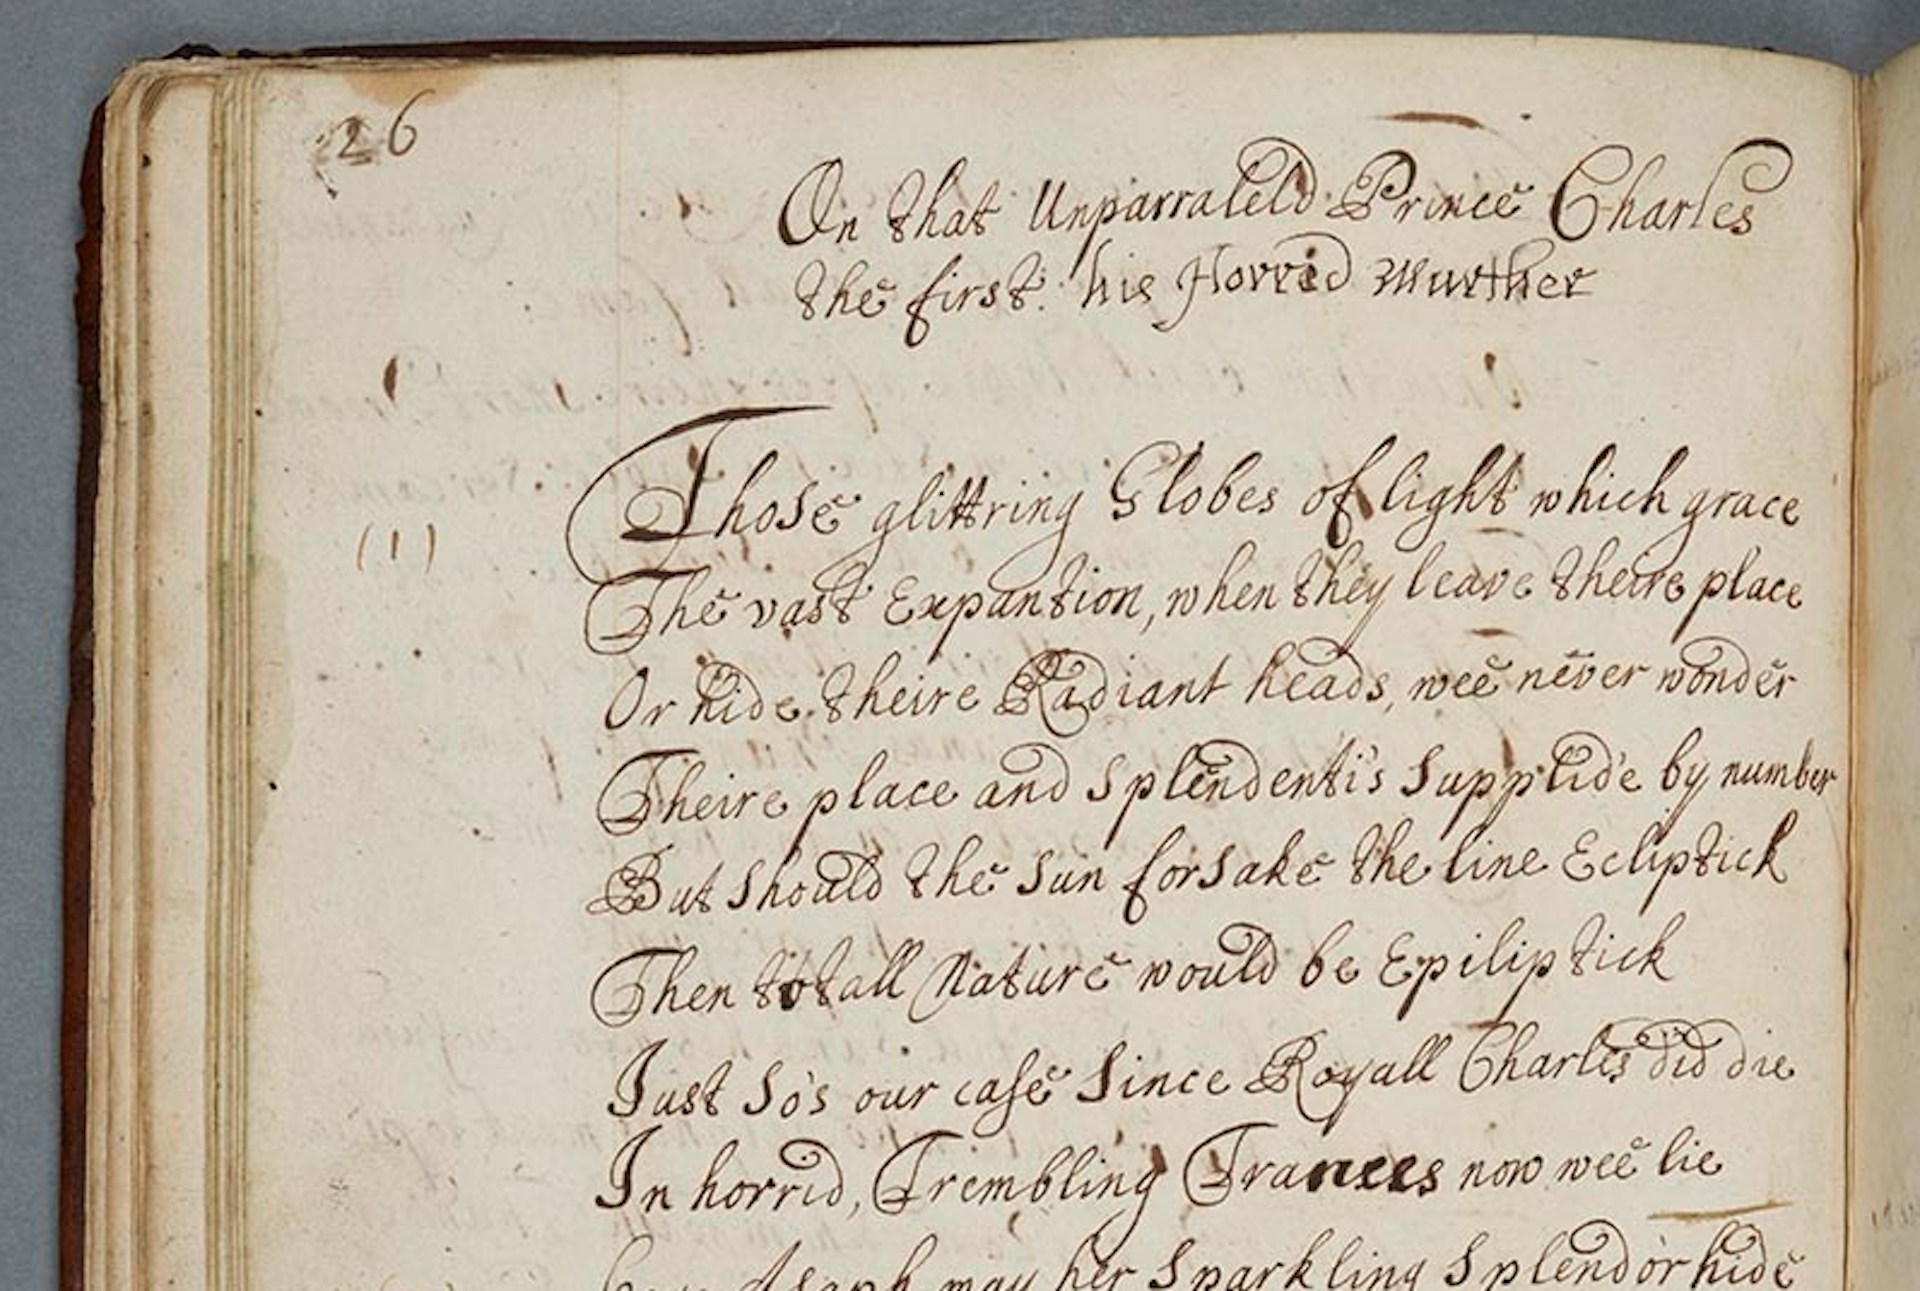 26
On that Unparraleld Prince Charles
the first: his Horrid Murther
(1)
Those glittring Globes of light which grace
The vast Expantion, when they leave theire place
Or hide theire Radiant heads, wee never wonder
Theire place and Splendenti's Supplid'e by number
But Should the Sun forSake the line Ecliptick
Then totall Nature would be Epiliptick
Just So's our case Since Royall Charles did die
In horrid, Trembling Trances now wee lie
Asaph may her Sparkling Splendor hide